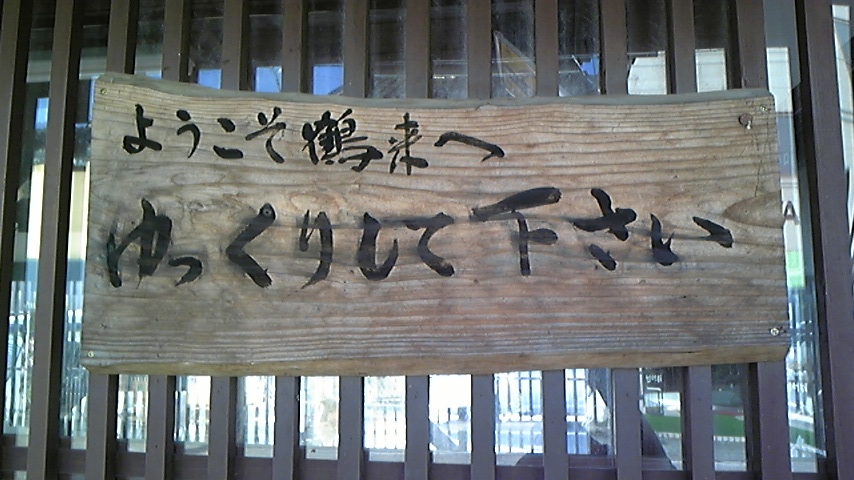 ようこそ鶴来へ
ゆっくりして下さい
A